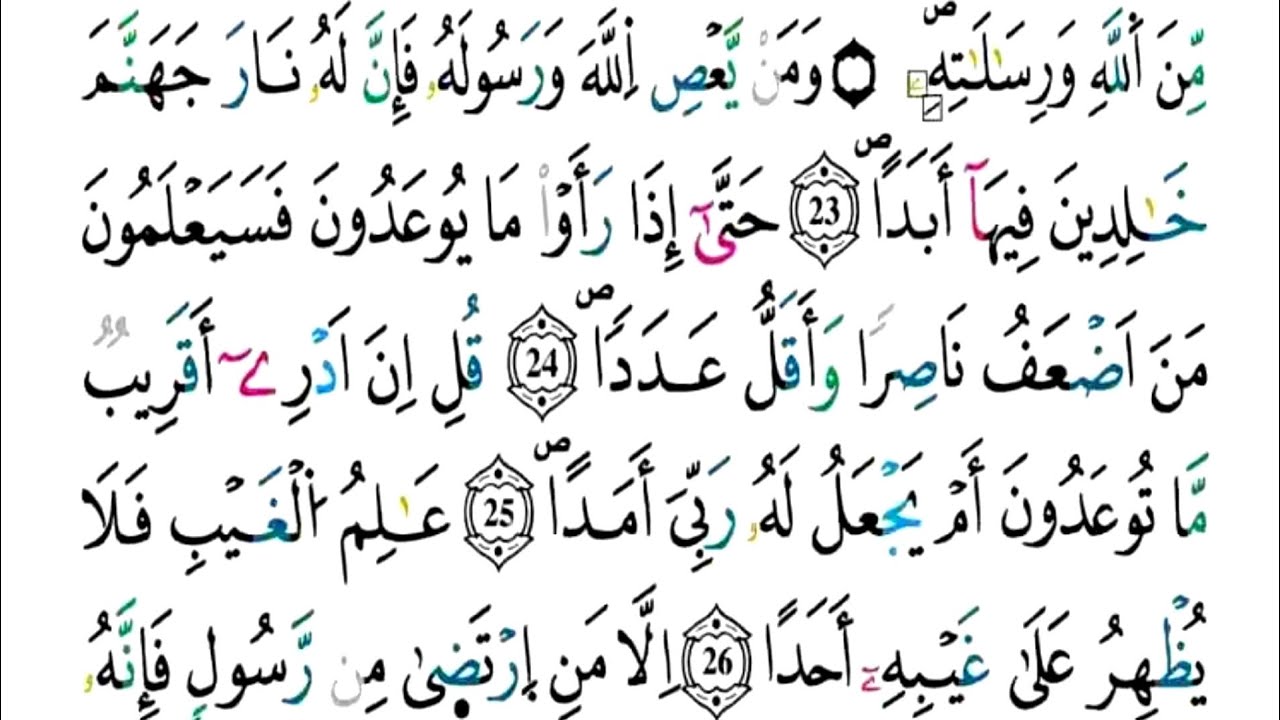 مِّنَ اَ۬للَّهِ وَرِسَٰلَٰتِهِۦۖ وَمَنْ يَّعْصِ اِ۬للَّهَ وَرَسُولَهُۥ فَإِنَّ لَهُۥ نَارَ جَهَنَّمَ
خَٰلِدِينَ فِيهَآ أَبَداًۖ 23 حَتَّىٰٓ إِذَا رَأَوْاْ مَا يُوعَدُونَ فَسَيَعْلَمُونَ
مَنَ اَضْعَفُ نَاصِراً وَأَقَلُّ عَدَداًۖ 24 قُلِ اِنَ اَدْرِےٓ أَقَرِيبٌ
مَّا تُوعَدُونَ أَمْ يَجْعَلُ لَهُۥ رَبِّيَ أَمَداًۖ 25 عَٰلِمُ اُ۬لْغَيْبِ فَلَا
يُظْهِرُ عَلَىٰ غَيْبِهِۦٓ أَحَداً 26 اِلَّا مَنِ اِ۪رْتَضۭيٰ مِن رَّسُولٖ فَإِنَّهُۥ